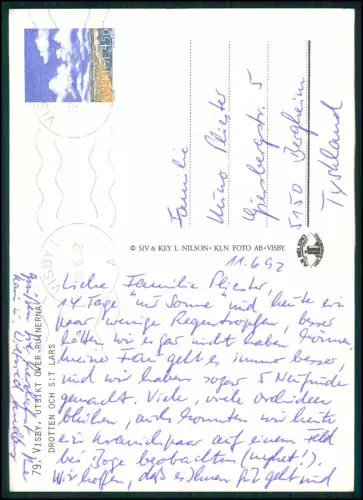 SVERIGE 4.50
VISBY
Familie
Kuno Pliester
Giesbergstr. 5
5150 Bergheim
Tyskland
© SIV & KEY L. NILSON • KLN FOTO AB • VISBY.
11.6.92
Liebe Familie Pliester,
14 Tage "nur Sonne" und heute ein
paar wenige Regentropfen, besser
hätten wir es gar nicht haben können.
Meine Frau geht es immer besser,
und wir haben sogar 5 Neufunde
gemacht. Viele, viele Orchideen
blühen, auch konnten wir heute
ein Kranichpaar auf einem Feld
bei Joge beobachten
Wir hoffen, daß es Ihnen gut geht und
79. VISBY. UTSIKT ÖVER RUINERNA
DROTTEN OCH S:T LARS